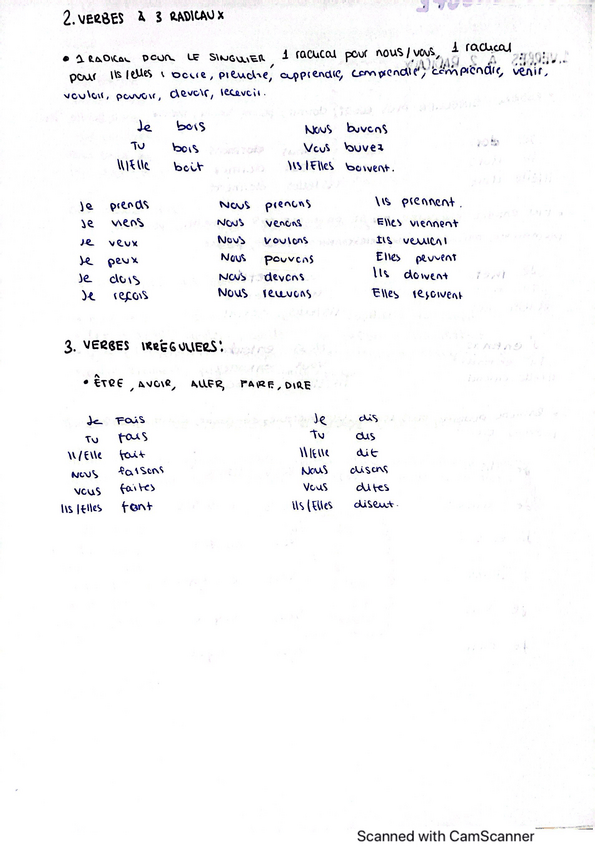 2. VERBES À 3 RADICAUX
• 1 RADICAL POUR LE SINGULIER, 1 radical pour nous/vous, 1 radical
pour Ils/elles : boire, prendre, apprendre, comprendre, comprendre, venir,
vouloir, pouvoir, devoir, recevoir.
Je bois Nous buvons
Tu bois Vous buvez
Il/Elle boit Ils/Elles boivent.
Je prends Nous prenons Ils prennent.
Je viens Nous venons Elles viennent
Je veux Nous voulons Ils veulent
Je peux Nous pouvons Elles peuvent
Je dois Nous devons Ils doivent
Je reçois Nous recevons Elles reçoivent
3. VERBES IRRÉGULIERS:
• ÊTRE, AVOIR, ALLER, FAIRE, DIRE
Je Fais Je dis
Tu fais Tu dis
Il/Elle fait Il/Elle dit
Nous faisons Nous disons
Vous faites Vous dites
Ils/Elles font Ils/Elles disent.
Scanned with CamScanner